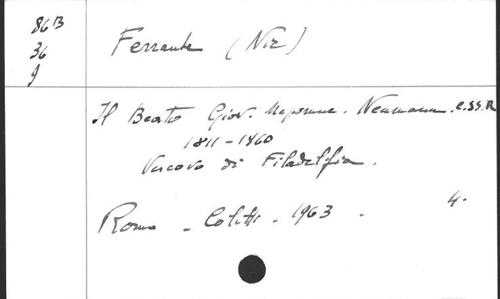 86 B
36
9
Ferrante (Nic)
Il Beato Giov. Nepomuc. Neumann. C.SS.R
1811-1860
Vescovo di Filadelfia.
Roma - Coletti - 1963 - 4.